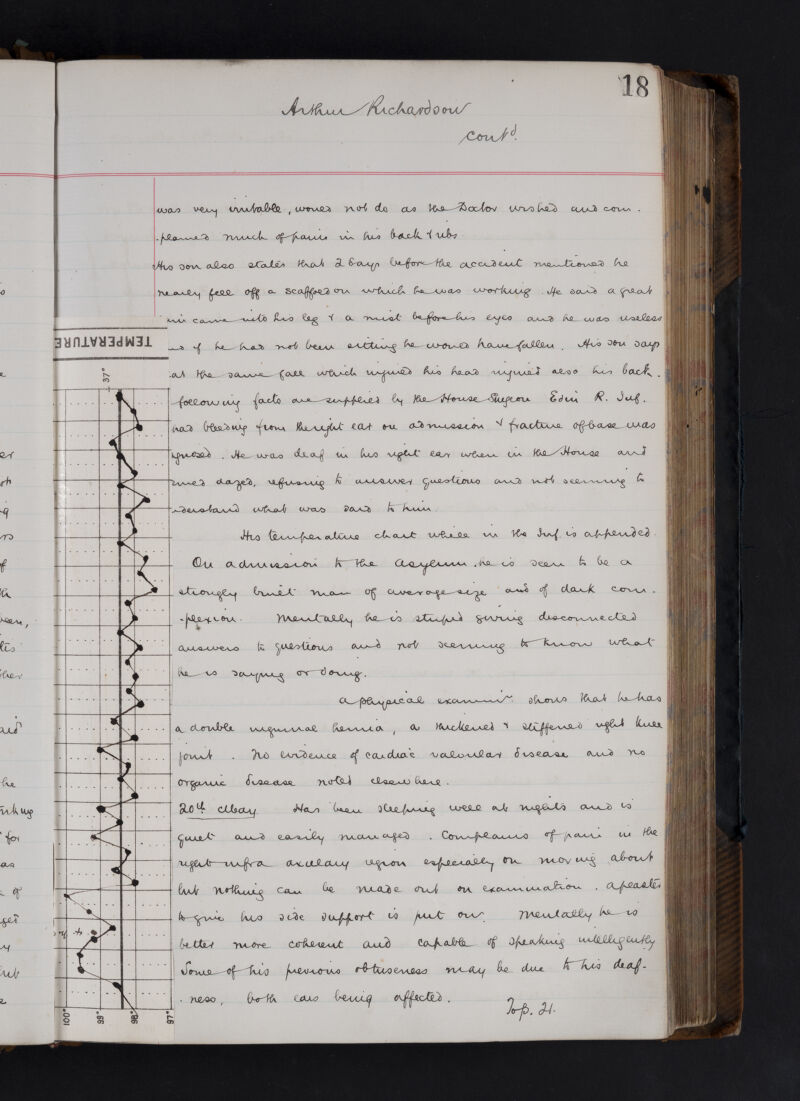 18
Arthur Richardson
contd.
was very irritable, would not do as the Doctor wished and com-
-plained much of pain in his back & ribs
His son also states that 2 days before the accident mentioned he
nearly fell off a scaffold on which he was working. He said a great
came into his leg & a mist before his eyes and he was useless
if he had not been sitting he would have fallen. His son says
at the same fall which injured his head injured also his back.
following facts are supplied by the House Surgeon Edin R. Inf.
had bleeding from the right ear on admission & fracture of base was
gnosed. He was deaf in his right ear when in the House and
med dazed, refusing to answer questions and not seeming to
nderstand what was said to him
His temperature chart while in the Inf. is appended.
On admission to the Asylum he is seen to be a
strongly built man of average size and of dark com-
-plexion. Mentally he is stupid giving disconnected
answers to questions and not seeming to know what
he is saying or doing.
A physical examinn. shows that he has
a double inguinal hernia, a thickened & stiffened right knee
joint. No evidence of cardiac valvular disease and no
organic disease noted elsewhere.
20th May Has been sleeping well at nights and is
quiet and easily managed. Complains of pain in the
right infra axillary region especially on moving about
but nothing can be made out on examination. A plaster
to give his side support is put on. Mentally he is
better more coherent and capable of speaking intelligently
Some of his previous obtuseness may be due to his deaf-
-ness, both ears being affected.
To p. 21.
TEMPERATURE
37°
100°
99°
98°
97°